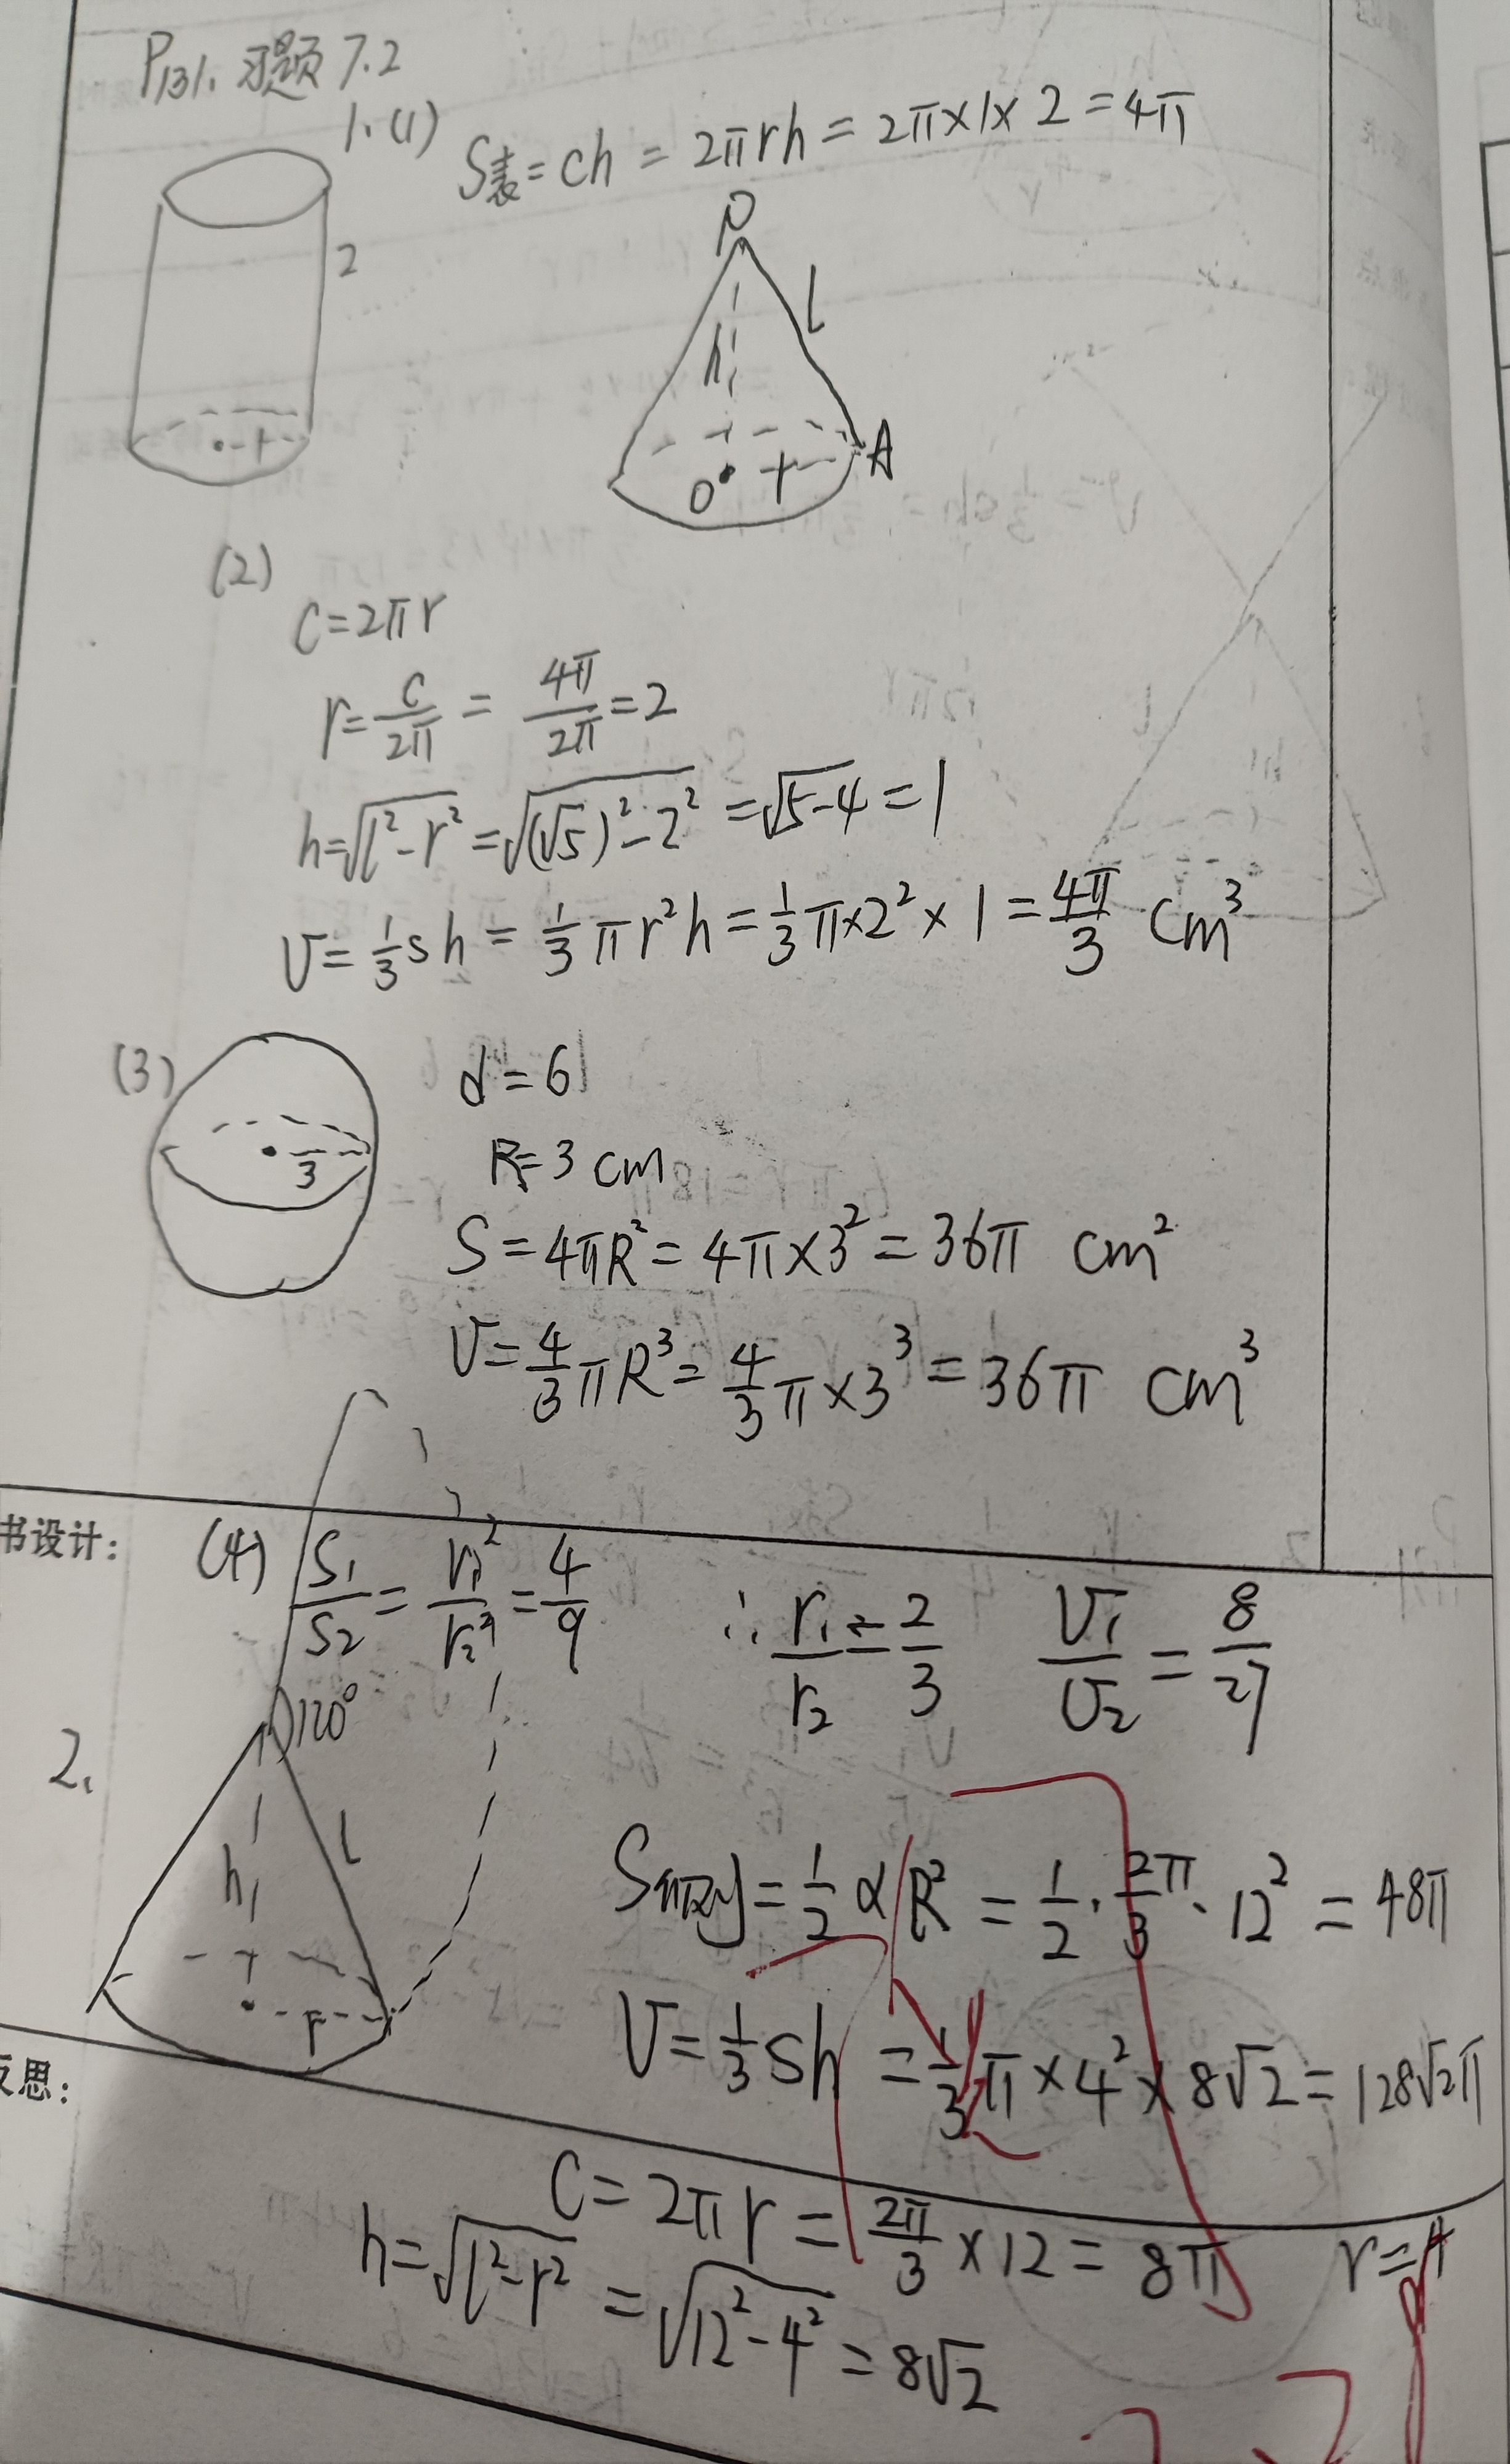 P131. 习题 7.2
1. (1) S表 = ch = 2πrh = 2π×1×2 = 4π
2
1
P
l
h
O
r
A
(2)
C = 2πr
r = c/2π = 4π/2π = 2
h = √(l² - r²) = √((√5)² - 2²) = √(5-4) = 1
V = 1/3 sh = 1/3 πr²h = 1/3 π×2²×1 = 4π/3 cm³
(3)
3
d = 6
R = 3 cm
S = 4πR² = 4π×3² = 36π cm²
V = 4/3 πR³ = 4/3 π×3³ = 36π cm³
书设计:
(4) S₁/S₂ = r₁²/r₂² = 4/9 ∴ r₁/r₂ = 2/3 V₁/V₂ = 8/27
2.
120°
h
l
r
= 1/2 αR² = 1/2 · 2π/3 · 12² = 48π
V = 1/3 sh = 1/3 π×4²×8√2 = 128√2π
思:
C = 2πr = 2π/3 × 12 = 8π r = 4
h = √(l² - r²) = √(12² - 4²) = 8√2